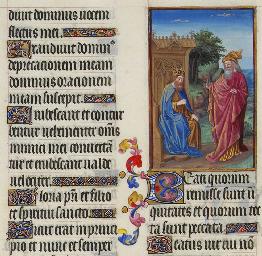 diuit dominus uocem
fletus mei.
Exaudiuit domin⁹
deprecationem meam
dominus orationem
meam suscepit.
Erubescant et contur
bentur uehementer omnes
inimici mei conuertā
tur et erubescant ualde
uelociter.
Gloria patri et filio
et spiritui sancto.
Sicut erat in princi
pio et nunc et semper
Beati quorum
remisse sunt ī
quitates et quorum tec
ta sunt peccata.
Beatus uir cui nō